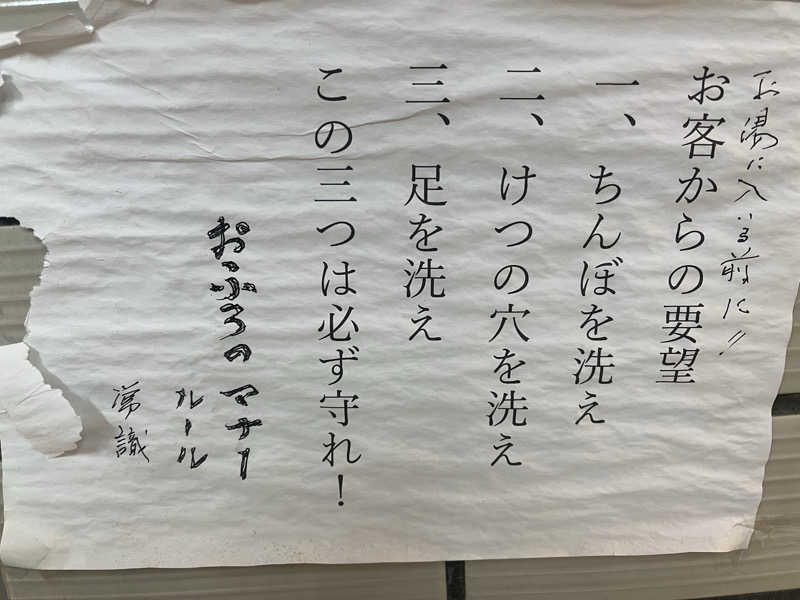 お湯に入る前に〃
お客からの要望
一、ちんぼを洗え
二、けつの穴を洗え
三、足を洗え
この三つは必ず守れ！
おふろのマナー
ルール
常識